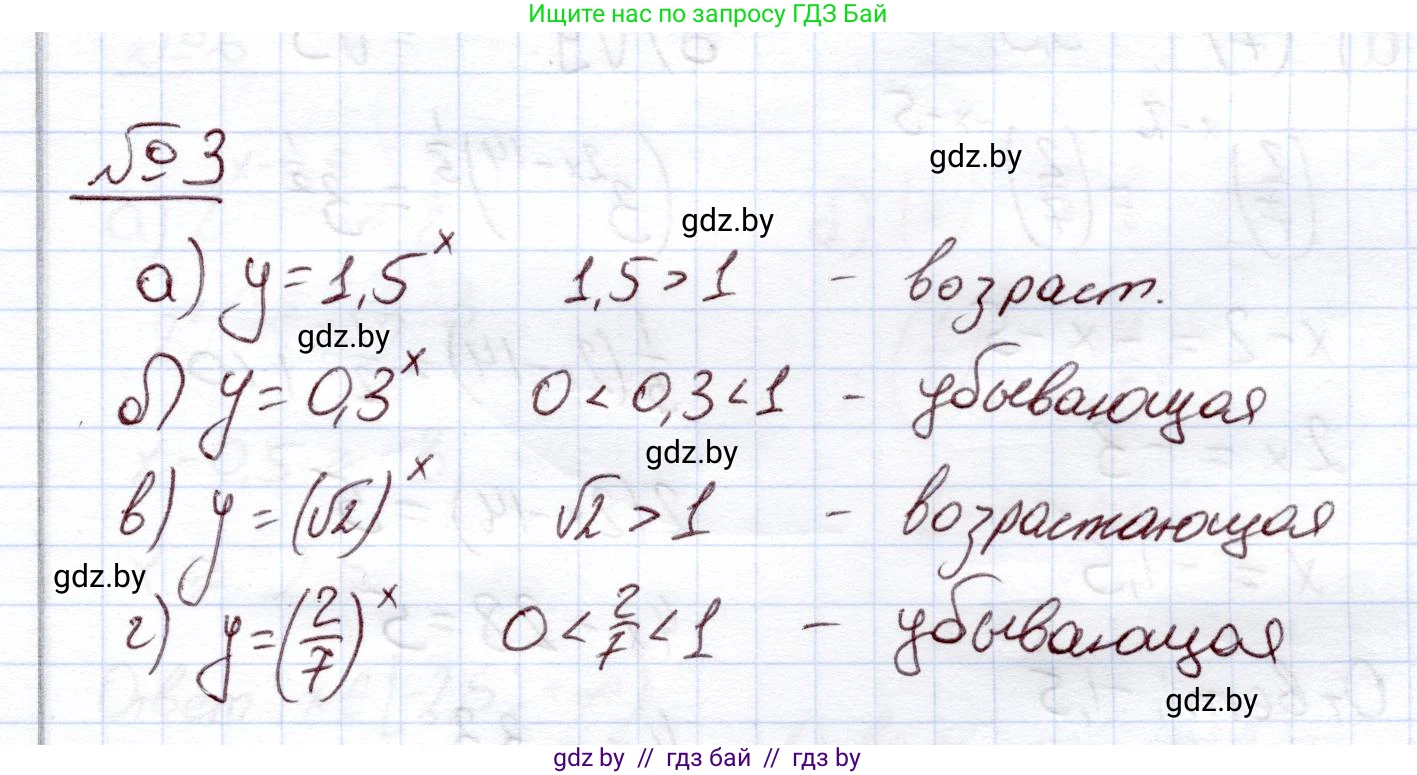 Ищите нас по запросу ГДЗ Бай
gdz.by
№ 3
gdz.by
а) y = 1,5^x 1,5 > 1 - возраст.
gdz.by
б) y = 0,3^x 0 < 0,3 < 1 - убывающая
gdz.by
в) y = (√2)^x √2 > 1 - возрастающая
gdz.by
г) y = (2/7)^x 0 < 2/7 < 1 - убывающая
gdz.by
gdz.by // гдз бай // гдз by